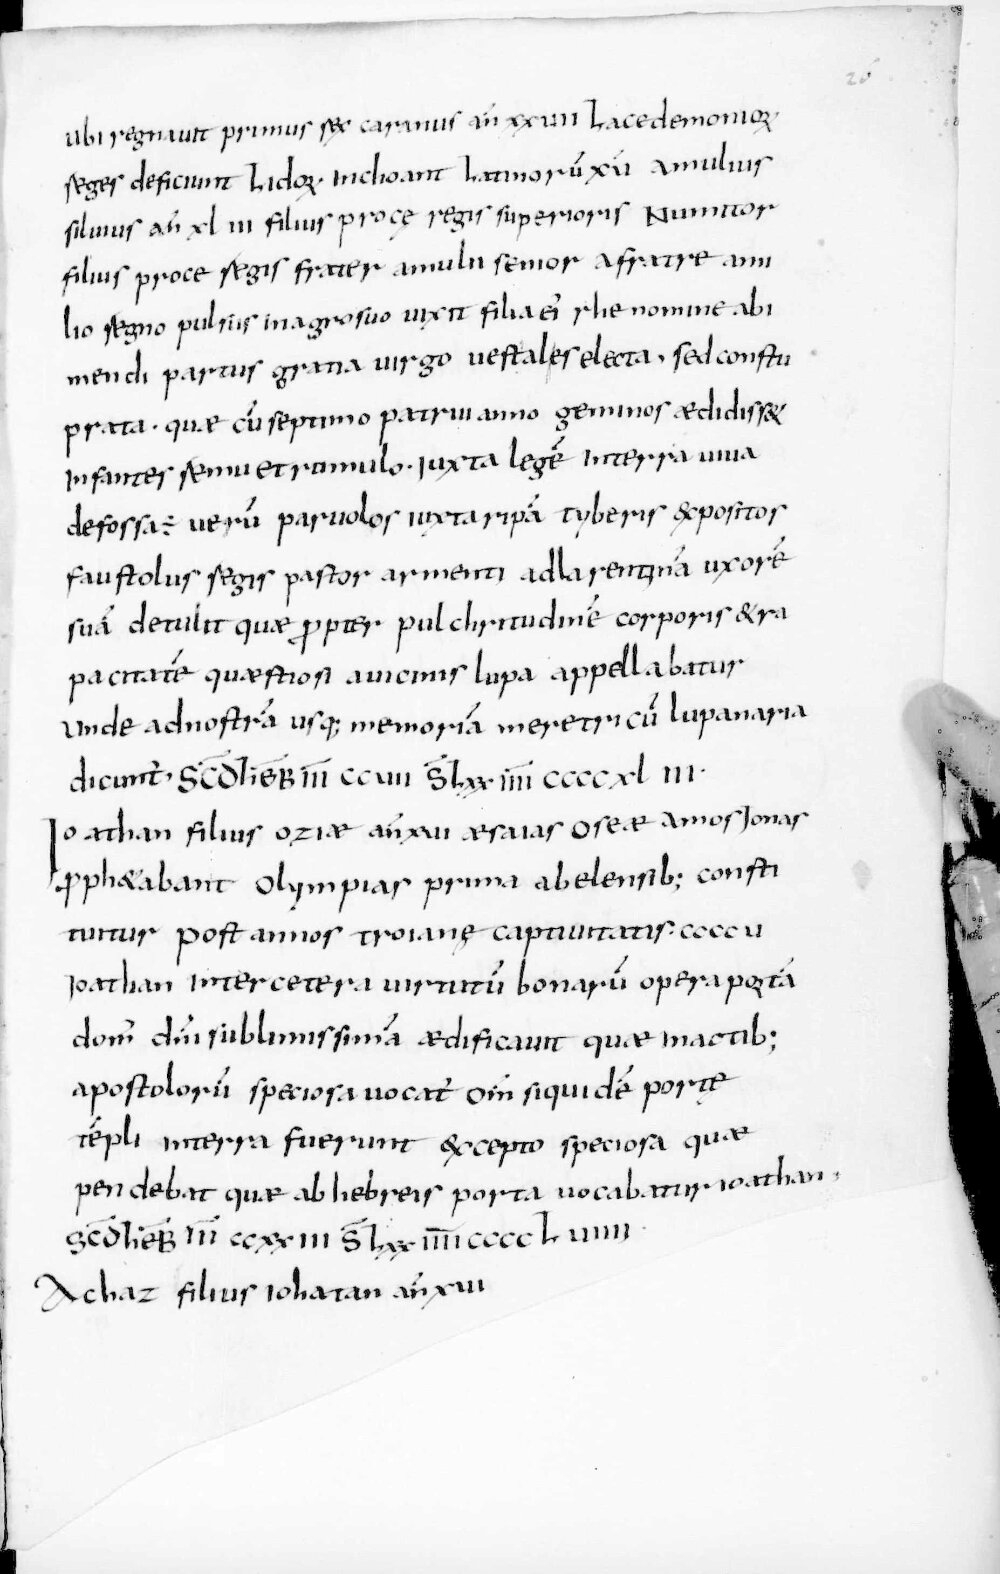 26
ubi regnauit primus rex caranus añ xxuiii Lacedemonioꝝ
reges deficiunt Lidoꝝ. Inchoant Latinorū xũi Amulius
siluius añ xl iii filius procę regis superioris Numitor
filius proce regis frater amulii senior afratre amu
lio regno pulsus inagrosuo uixit filia ei rhe nomine abi
mendi partus gratia uirgo uestales electa. sed constu
prata. quæ cū septimo patrui anno geminos ædidiss&
Infantes seruuetrtumulo. Iuxta legē Interra uiua
defossa÷ uerū paruolos iuxtaripā tyberis &positos
faustolus regis pastor armenti adlarentinā uxorē
suā detulit quæ ꝓpter pulchritudinē corporis & ra
pacitatē quæstiosi auicinis lupa appellabatur
Unde adnostrā usq; memoriā meretricū lupanaria
dicunt̄. SC̄D̄h̄EB̄ īīī ccuiii S̄lxx īīīī ccccxl iii.
Ioathan filius oziæ añxui æsaias Oseæ Amos Jonas
ꝓph&abant Olympias prima abelensib; consti
tuitur post annos troianę captiuitatis. ccccu
Ioathan Intercetera uirtutū bonarū opera poꝛtā
dom̄ dn̄i sublimissimā ædificauit quæ inactib;
apostolorū speciosa uocat̄ Om̄ siquidē portę
tēpli interra fuerunt &cepto speciosa quæ
pendebat quæ abhebreis porta uocabatur ioathan.
SC̄D̄h̄EB̄ īīī ccxxiii S̄lxx īīīī ccccLuiiii.
Achaz filius iohatan añxui